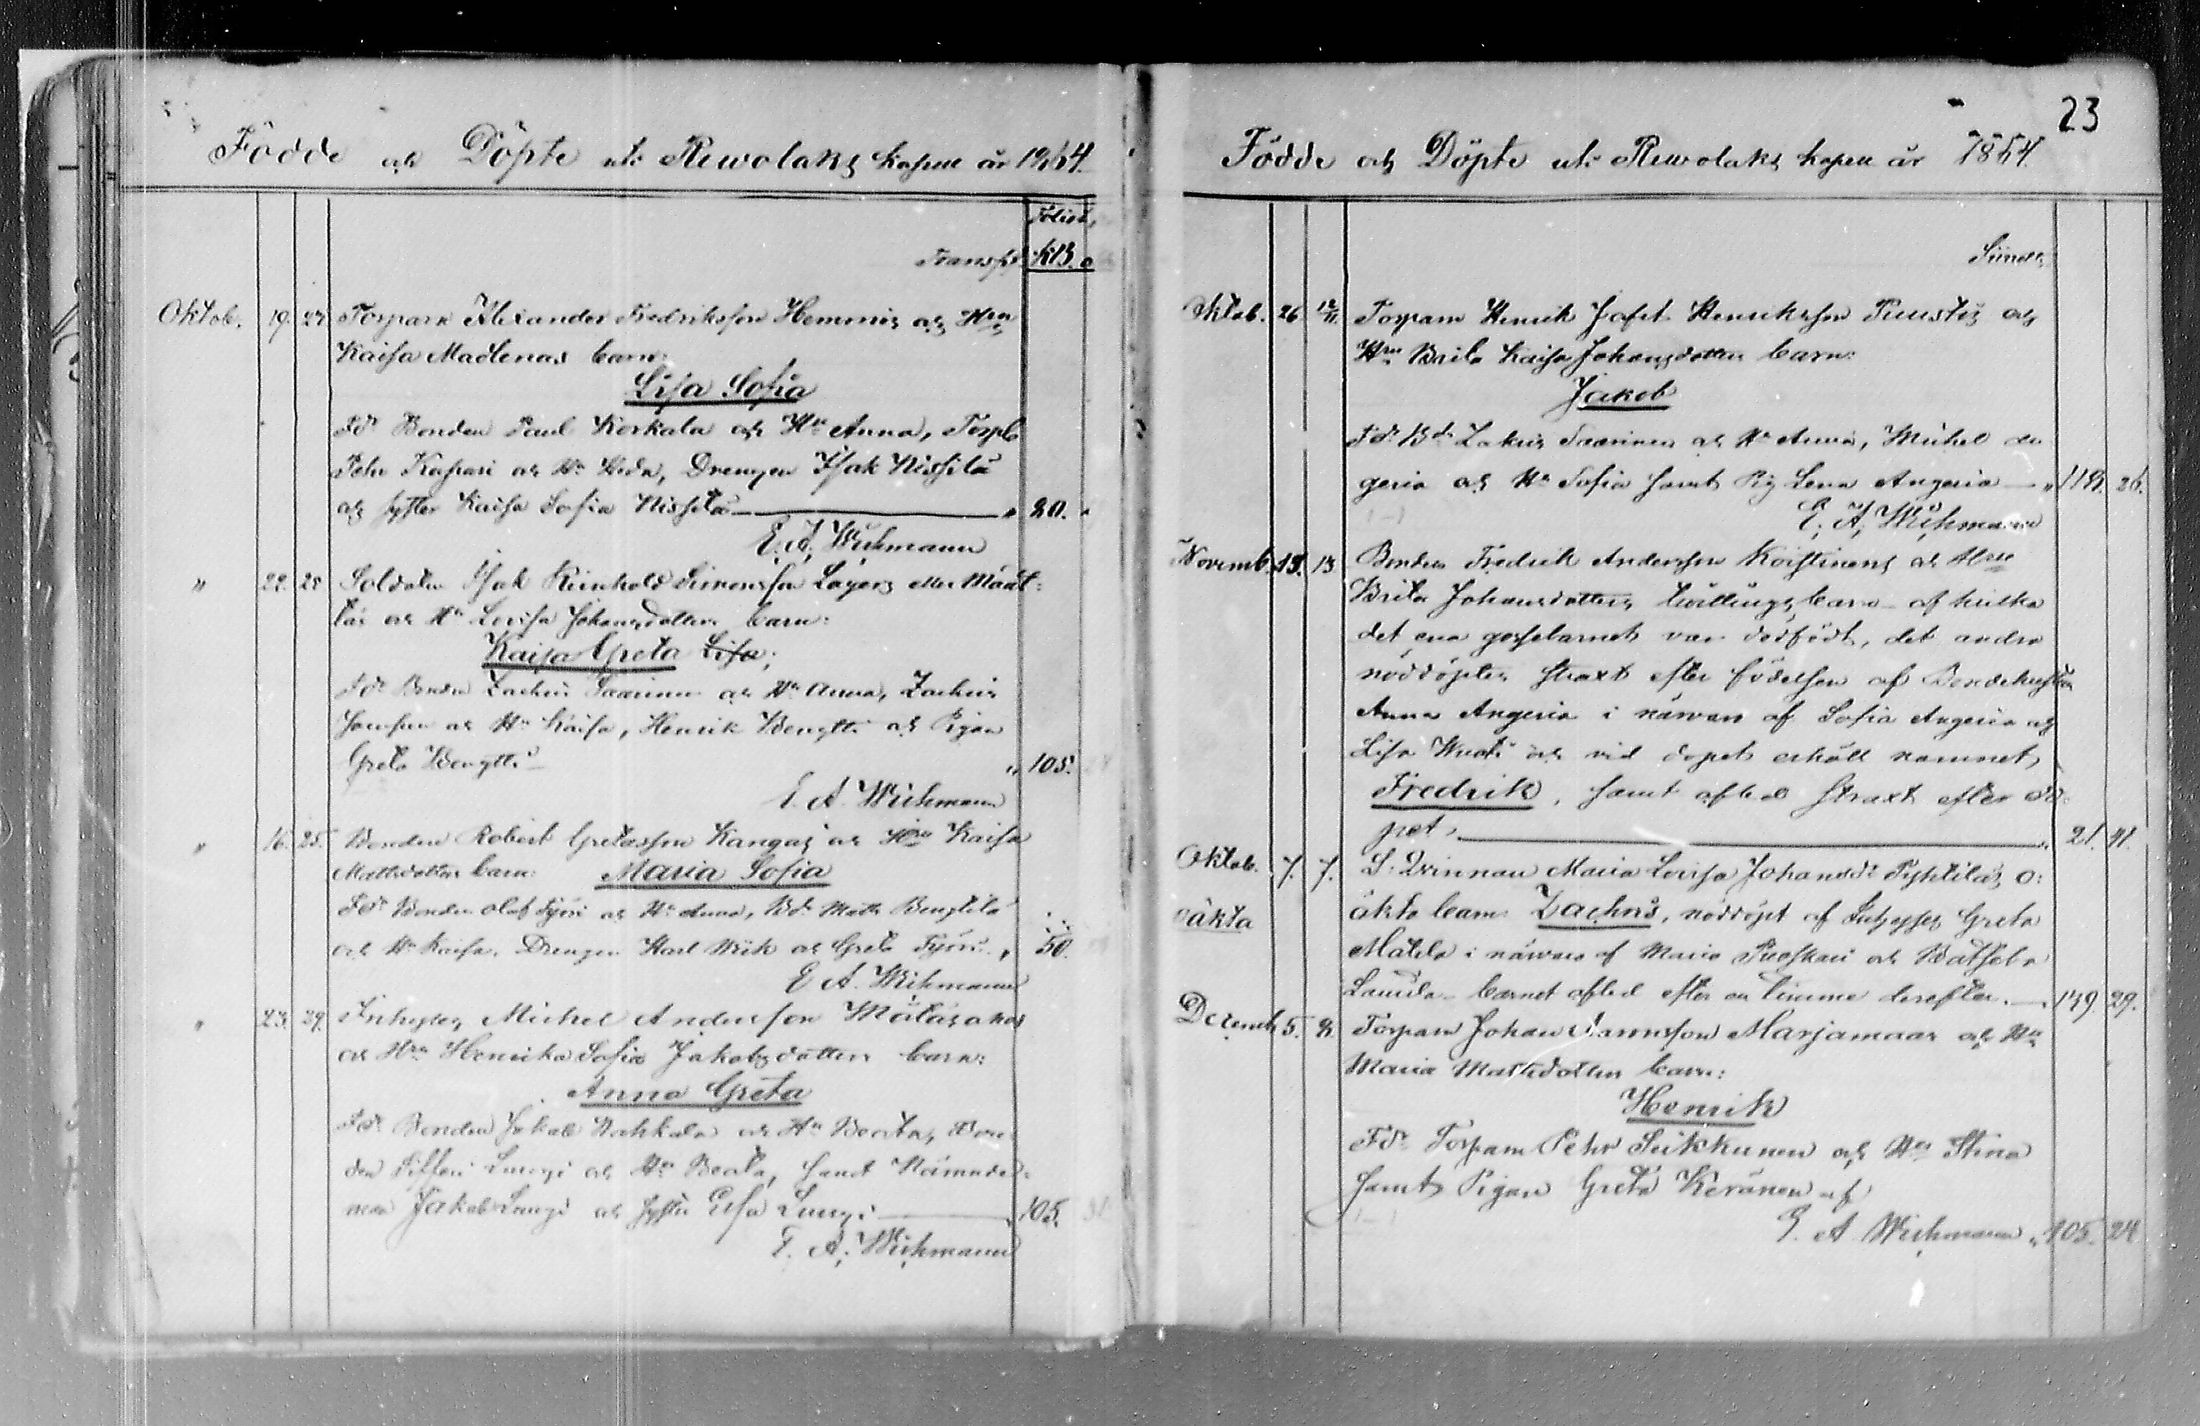 Födde och Döpte uti Rewolaks kapell år 1864.
Foliet
Transp. KB.
Oktob. 19. 27 Torparn Alexander Fredriksson Hemmis och Hru
Kaisa Madlenas barn:
Lisa Sofia
Fdr Bonden Paul Korkala och Hu Anna, Torp.
Petter Kaspari och Hu Heda, Drengen Isak Nissilä
och syster Kaisa Sofia Nissilä " 20.
E. A. Wichmann
" 22. 28 Soldaten Isak Reinhold Simonsson Lagers eller Määt-
täs och Hu Lovisa Johansdotters barn:
Kaisa Greta Lisa;
Fdr Bonden Zachris Saarinen och Hu Anna, Zachris
och Hu Kaisa, Henrik Bengtti och Pigan
Greta Bengtti " 105.
E. A. Wichmann
" 16. 25. Bonden Robert Gretasson Kangas och Hru Kaisa
Mattsdotters barn: Maria Sofia
Fdr Bonden Olof Työri och Hu Anna, Bd. Matts Bengtilä
och Hu Kaisa, Drengen Karl Wiik och Greta Työri " 50.
E. A. Wichmann
" 23. 29. Inhyses Michel Andersson Mätäsahos
och Hru Henrika Sofia Jakobsdotters barn:
Anna Greta
Fdr Bonden Jakob Kahkala och Hu Beata, Bon-
den Luusi och Hu Beata, samt Nämnde-
man Jakob Luusi och syster Elsa Luusi " 105.
E. A. Wichmann
23
Födde och Döpte uti Rewolaks kapell år 1864.
Oktob. 26 12/11. Torparn Henrik Jafet Henriksson Ruustis och
Hru Brita Kaisa Johansdotters barn:
Jakob
Fdr Bd. Zakris Saarinen och Hu Anna, Michel An
geria och Hu Sofia samt Pig. Lena Angeria " 119. 26.
E. A. Wichmann
Novemb. 13. 13 Bonden Fredrik Andersson Koistinens och Hru
Brita Johansdotters tvillingsbarn af hvilka
det ena gossebarnet var dödfödt, det andra
nöddöptes straxt efter födelsen af Bondehustru
Anna Angeria i närvaro af Sofia Angeria och
Lisa och vid dopet erhöll namnet,
Fredrik, samt afled straxt efter do-
pet, " 21. 41.
Oktob. 7. 7. Qvinnan Maria Lovisa Johansdr o:
oäkta äkta barn Zachris, nöddöpt af Inhyses Greta
Matela i närvaro af Maria Puoskari och Batseba
Laurila. barnet afled efter en timme derefter. 149. 29.
Decemb. 5. 8. Torparn Johan Hannusson Marjamaas och Hu
Maria Mattsdotters barn:
Henrik
Fdr Torparn Petter Siikkunen och Hu Stina
samt Pigan Greta Keränen af
E. A. Wichmann " 105. 24